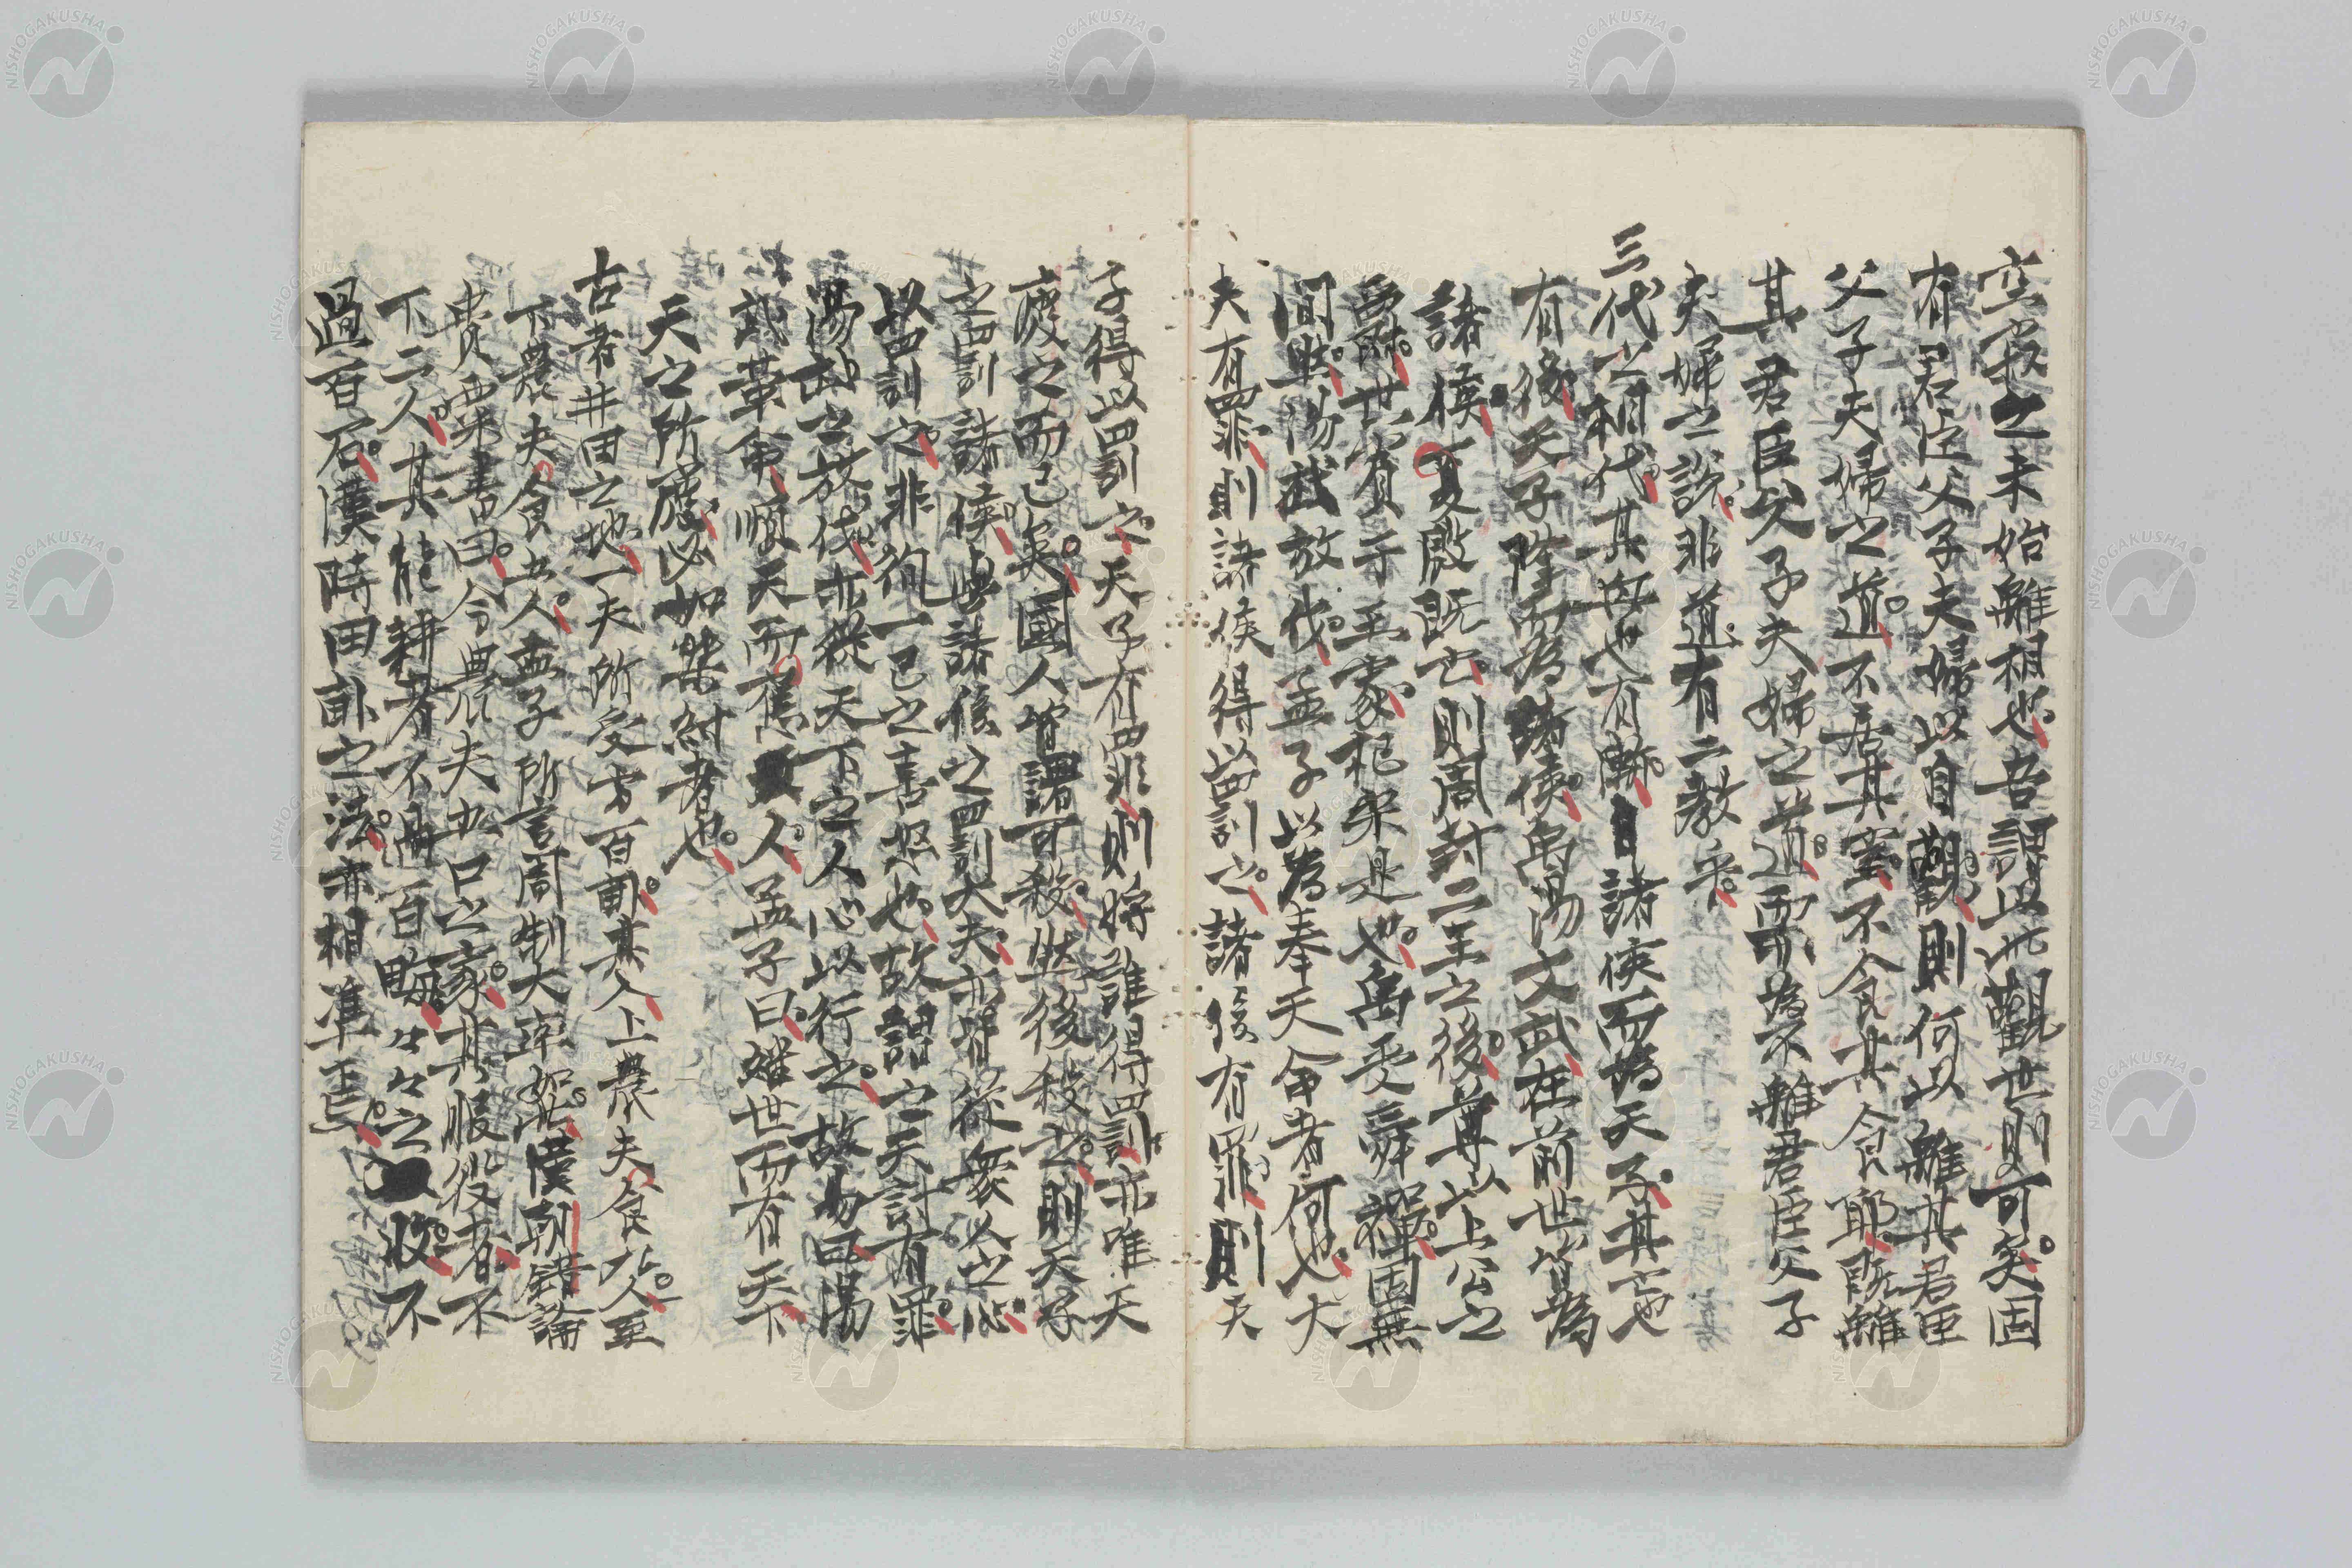 空寂之未始離相也吾謂以此觀世則可矣固
有君臣父子夫婦以自觀則何以離其君臣
父子夫婦之道不居其室不食其食耶既離
其君臣父子夫婦之道而為不離君臣父子
夫婦之說非道有二教乎
三代之相代其興也有漸自諸侯而為天子其亡也
有後天子降而為諸侯禹湯文武在前世皆為
諸侯夏殷既亡則周封二王之後尊以上公之
爵世賓于王家杞宋是也禹受舜禪固無
間然湯武放伐孟子以為奉天命者何也大
夫有罪則諸侯得以罰之諸侯有罪則天
子得以罰之天子有罪則將誰得罰亦唯天
廢之而已矣國人皆謂可殺然後殺之則天子
之罰諸侯與諸侯之罰大夫亦皆從眾人之心
以罰之非徇一己之喜怒也故謂之天討有罪
湯武之放伐亦從天下之人心以行之故易曰湯
武革命順天而應人孟子曰繼世而有天下
天之所廢必如桀紂者也
古者井田之地一夫所受者百畝其人上農夫食九人至
下農夫食五人孟子所言周制大率如此漢朝錯論
貴粟書曰今農夫五口之家其服役者不
下二人其能耕者不過百畮々々之收不
過百石漢時田畝之法亦相準焉
NISHOGAKUSHA